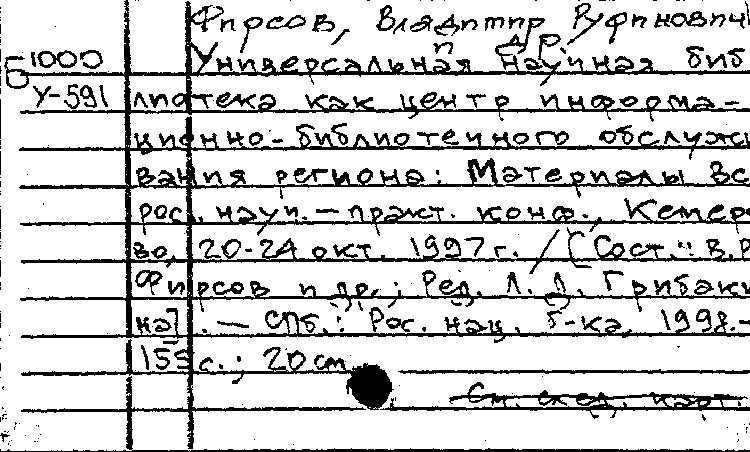 Фирсов, Владимир Руфинович
и др.
Б1000 Универсальная научная биб
У-591 лиотека как центр информа-
ционно-библиотечного обслужи
вания региона: Материалы Вс
рос. науч.-практ. конф., Кемеро
во, 20-24 окт. 1997 г. / [Сост.: В.Р.
Фирсов и др.; Ред. Л. Д. Грибаки
на]. — СПб.: Рос. нац. б-ка, 1998.-
155 с.; 20 см
См. след. карт.